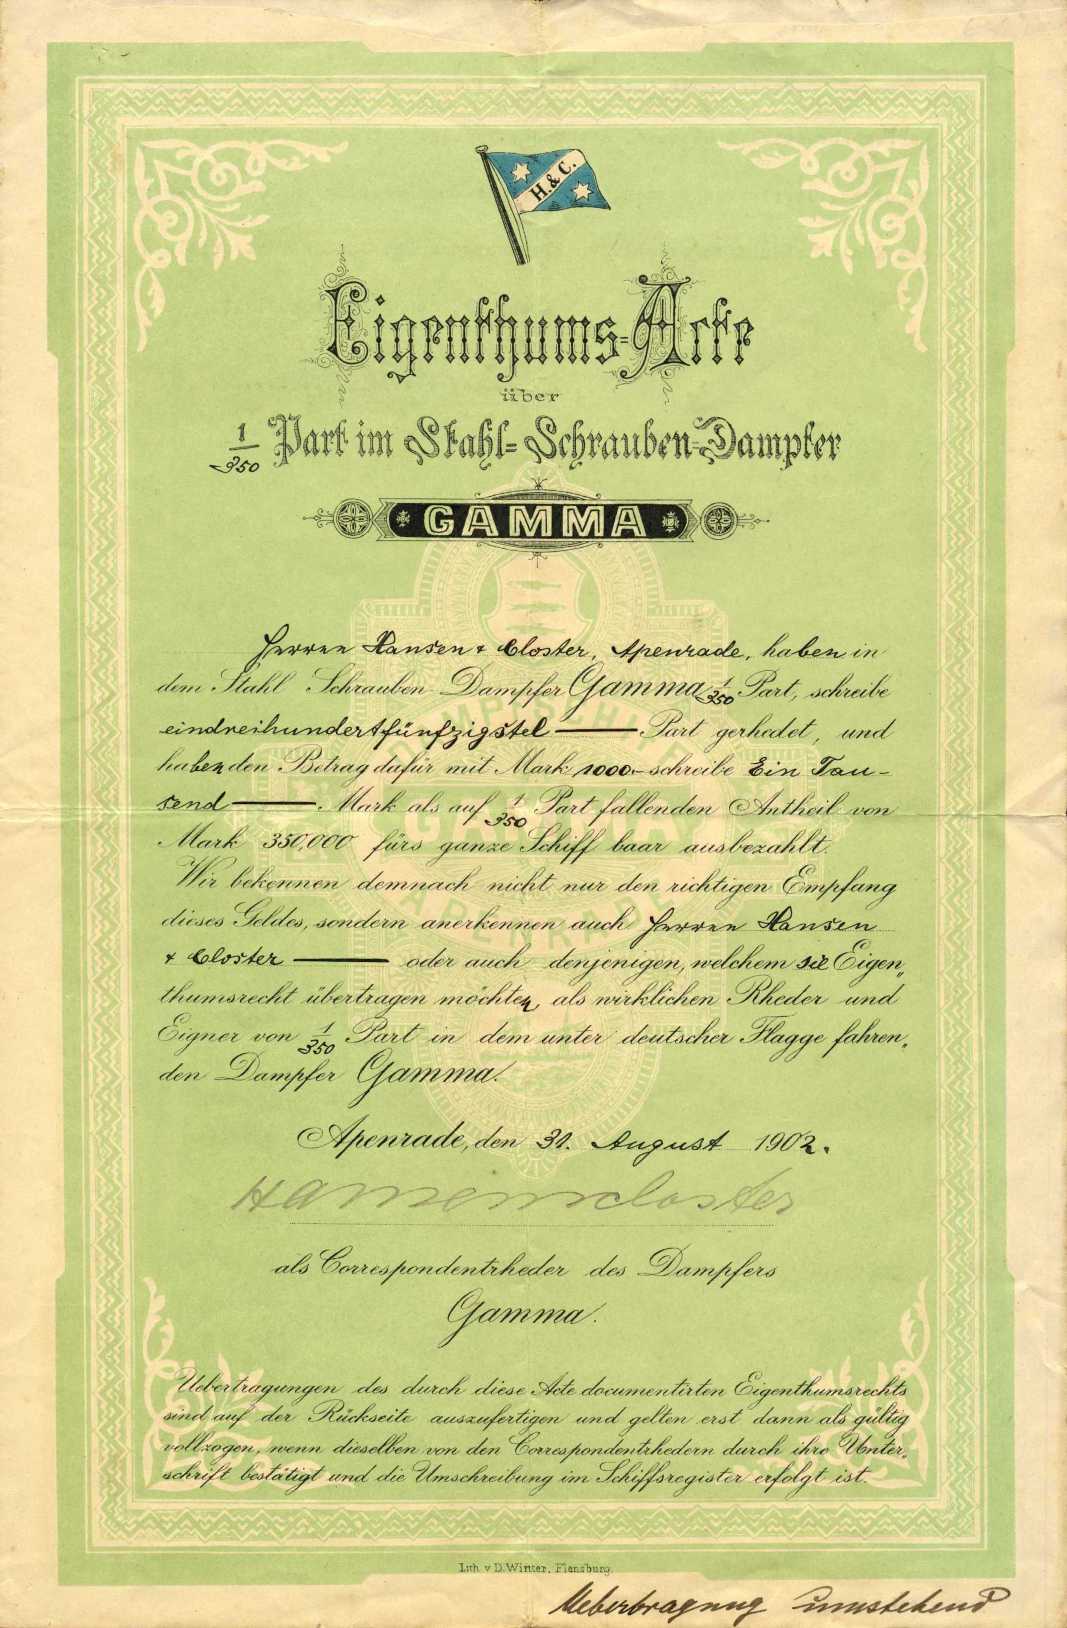 H. & C.
Eigenthums-Acte
über
1/350 Part im Stahl-Schrauben-Dampfer
GAMMA
Herren Hansen & Closter, Apenrade, haben in
dem Stahl Schrauben Dampfer Gamma 1/350 Part, schreibe
eindreihundertfünfzigstel — Part gerhedet, und
haben den Betrag dafür mit Mark 1000.- schreibe Ein Tau-
send — Mark als auf 1/350 Part fallenden Antheil von
Mark 350,000 fürs ganze Schiff baar ausbezahlt.
Wir bekennen demnach nicht nur den richtigen Empfang
dieses Geldes, sondern anerkennen auch Herren Hansen
& Closter — oder auch denjenigen, welchem sie Eigen„
thumsrecht übertragen möchten, als wirklichen Rheder und
Eigner von 1/350 Part in dem unter deutscher Flagge fahren„
den Dampfer Gamma.
Apenrade, den 31. August 1902.
Hansen & Closter
als Correspondentrheder des Dampfers
Gamma.
Uebertragungen des durch diese Acte documentirten Eigenthumsrechts
sind auf der Rückseite auszufertigen und gelten erst dann als gültig
vollzogen, wenn dieselben von den Correspondentrhedern durch ihre Unter„
schrift bestätigt und die Umschreibung im Schiffsregister erfolgt ist.
Lith. v. D. Winter, Flensburg.
Uebertragung umstehend